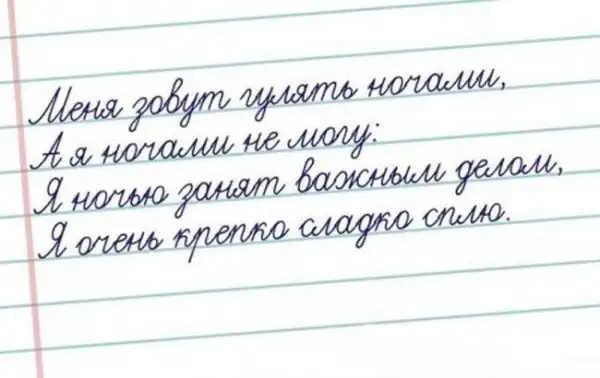 Меня зовут гулять ночами,
А я ночами не могу:
Я ночью занят важным делом,
Я очень крепко сладко сплю.